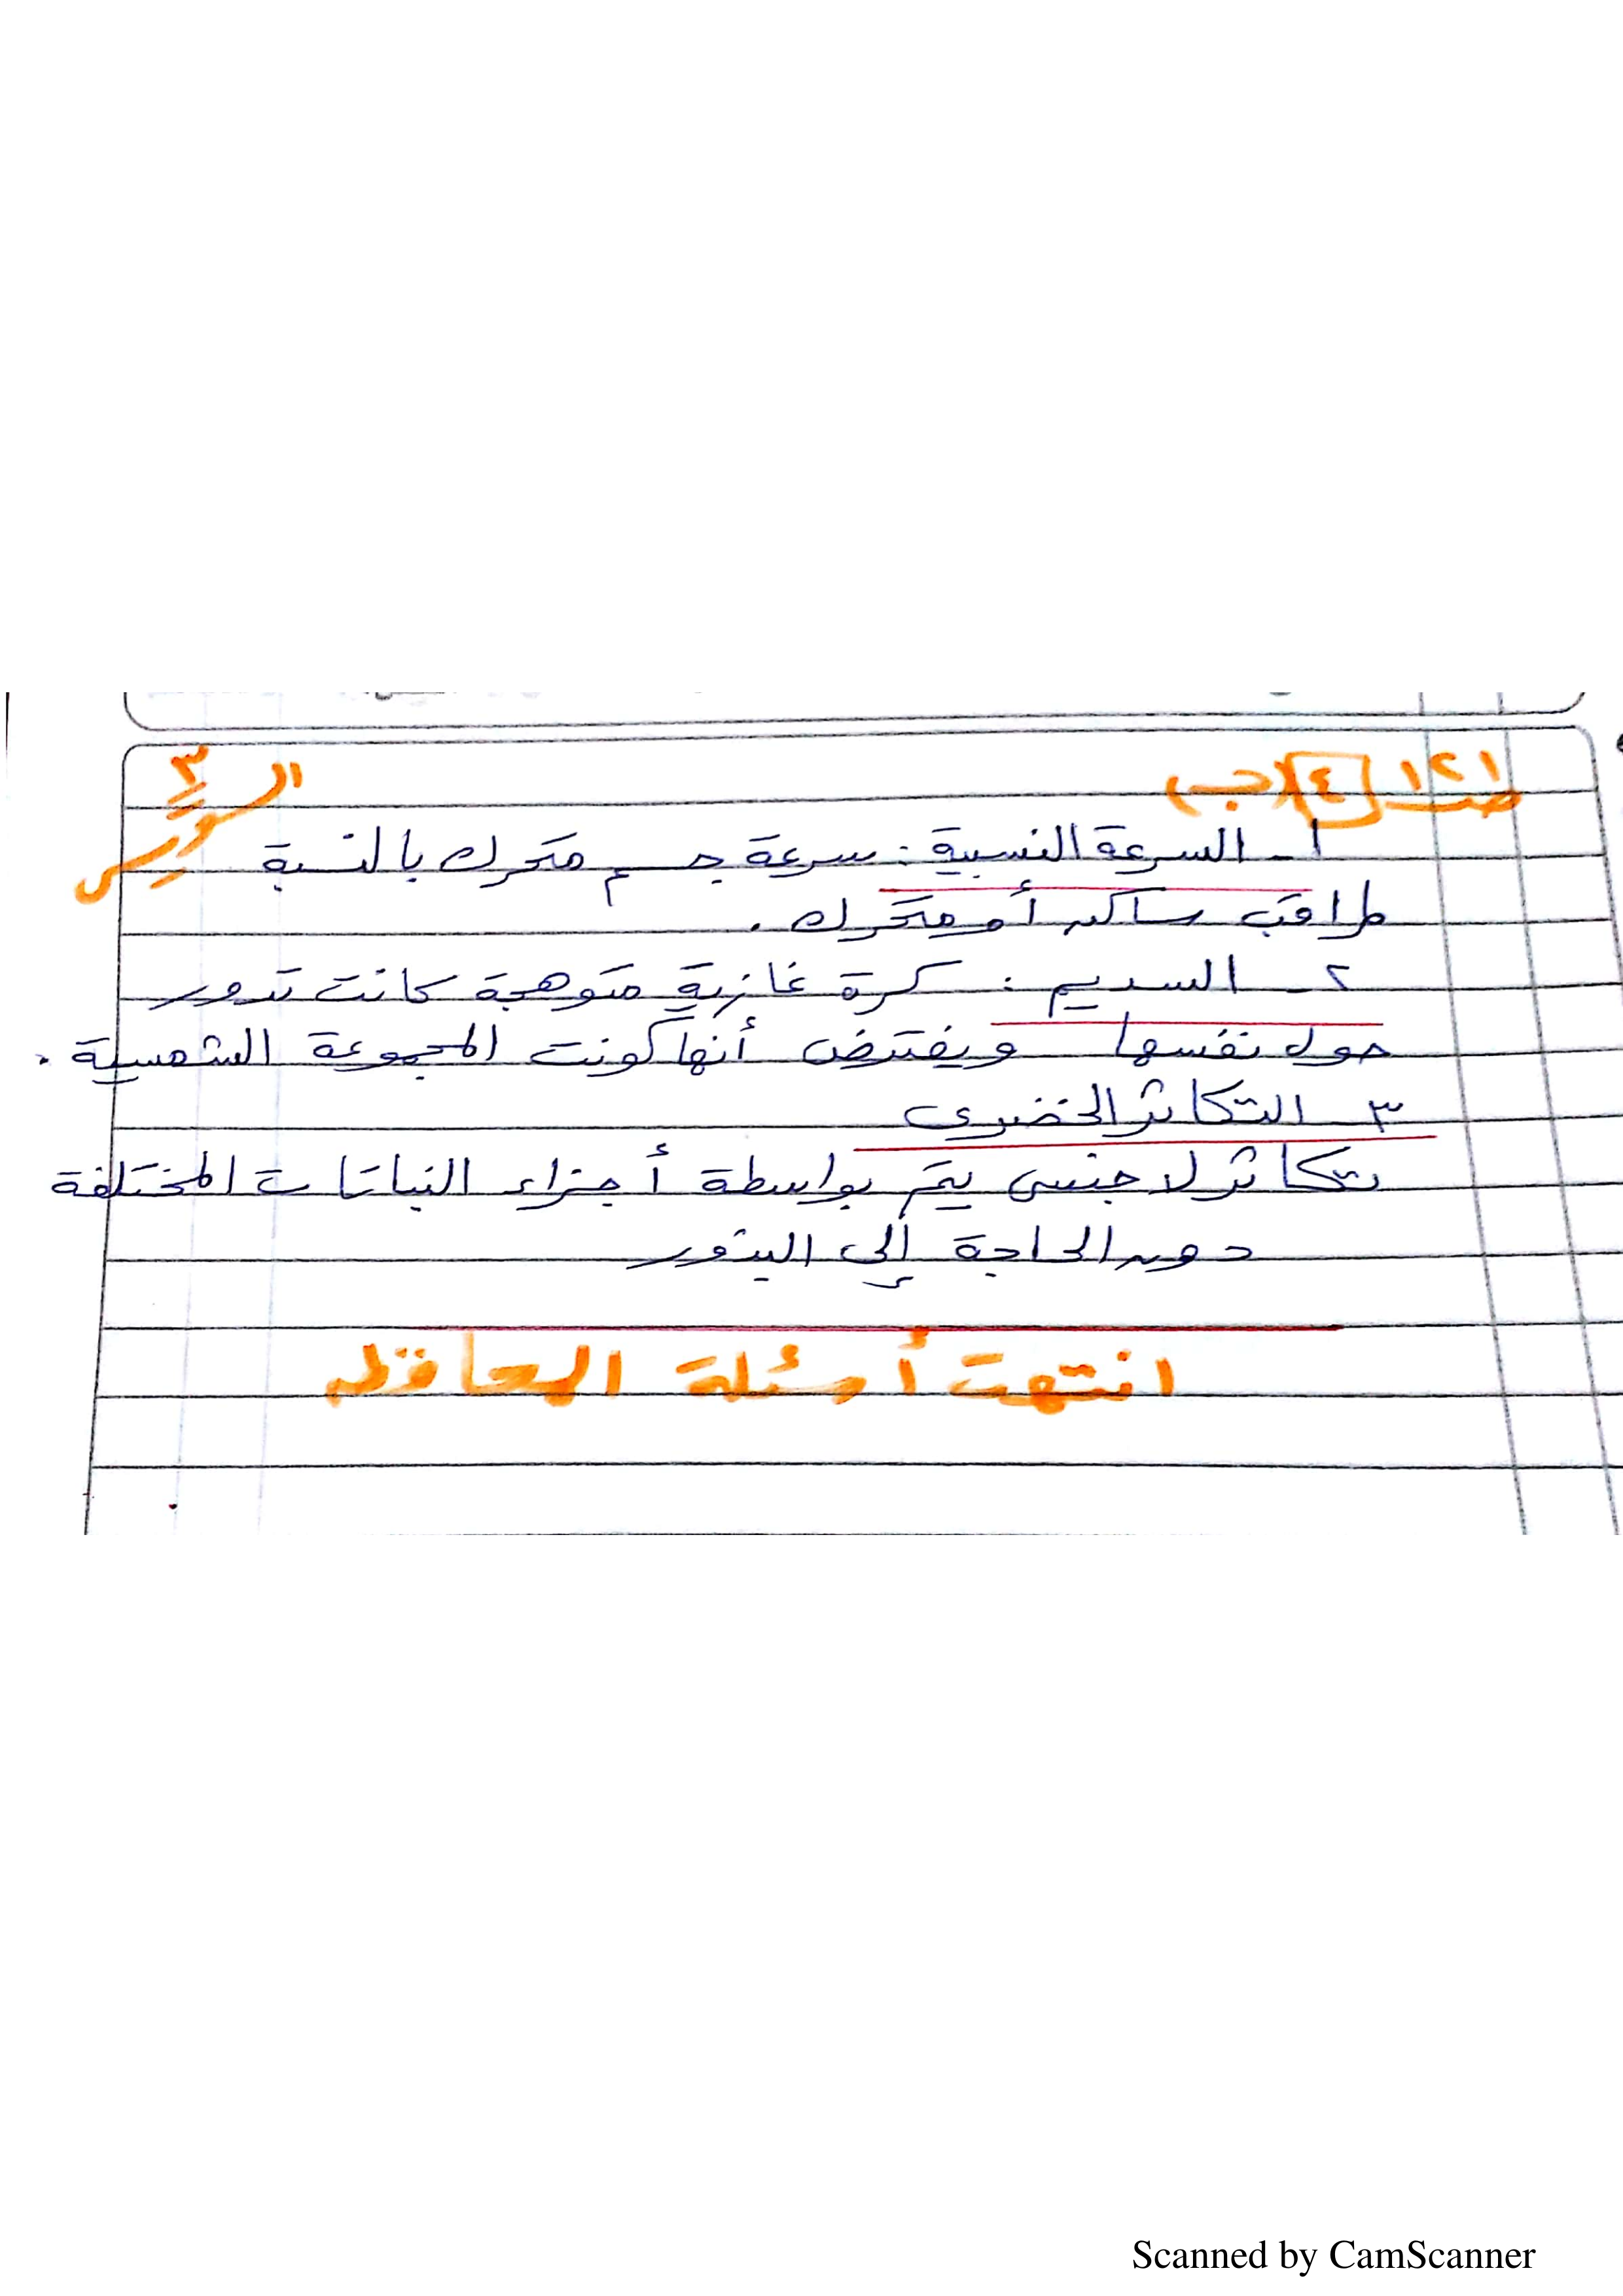 ص ١٢١ ٤ (ب)
٣
السويس
١ـ السرعة النسبية : سرعة جسم متحرك بالنسبة
لمراقب ساكن أو متحرك .
٢ـ السديم : كرة غازية متوهجة كانت تدور
حول نفسها ويفترض أنها كونت المجموعة الشمسية .
٣ـ التكاثر الخضرى
تكاثر لا جنسى يتم بواسطة أجزاء النباتات المختلفة
دون الحاجة إلى البذور
انتهت أسئلة المحافظ
Scanned by CamScanner